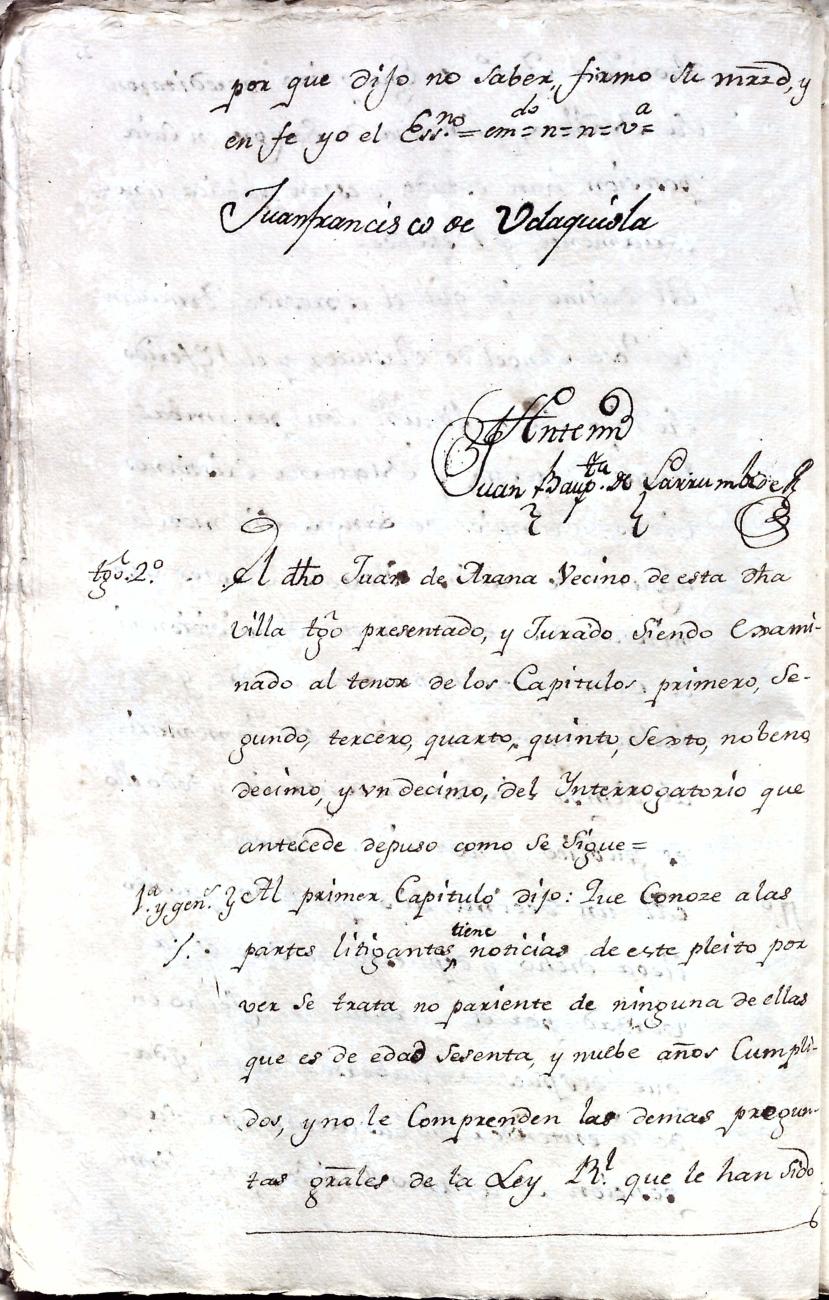 por que dijo no saber, firmo su mrzd, y
en fe yo el Essno = emdo = n = n = va =
Juanfrancisco de Udaquiola
Antemi
Juan Baupta de Larrumbide
tgo. 2o. El dho Juan de Arana Vecino de esta dha
villa tgo presentado, y Jurado siendo Exami-
nado al tenor de los Capitulos primero, Se-
gundo, tercero, quarto, quinto, Sexto, nobeno
decimo, y vn decimo, del Ynterrogatorio que
antecede depuso como se sigue =
1.a y gens. Al primer Capitulo dijo: Que Conoze a las
partes litigantes, tiene noticias de este pleito por
ver se trata no pariente de ninguna de ellas
que es de edad sesenta, y nuebe años Cumpli-
dos, y no le Comprenden las demas pregun-
tas grales de la Ley Rl. que le han sido